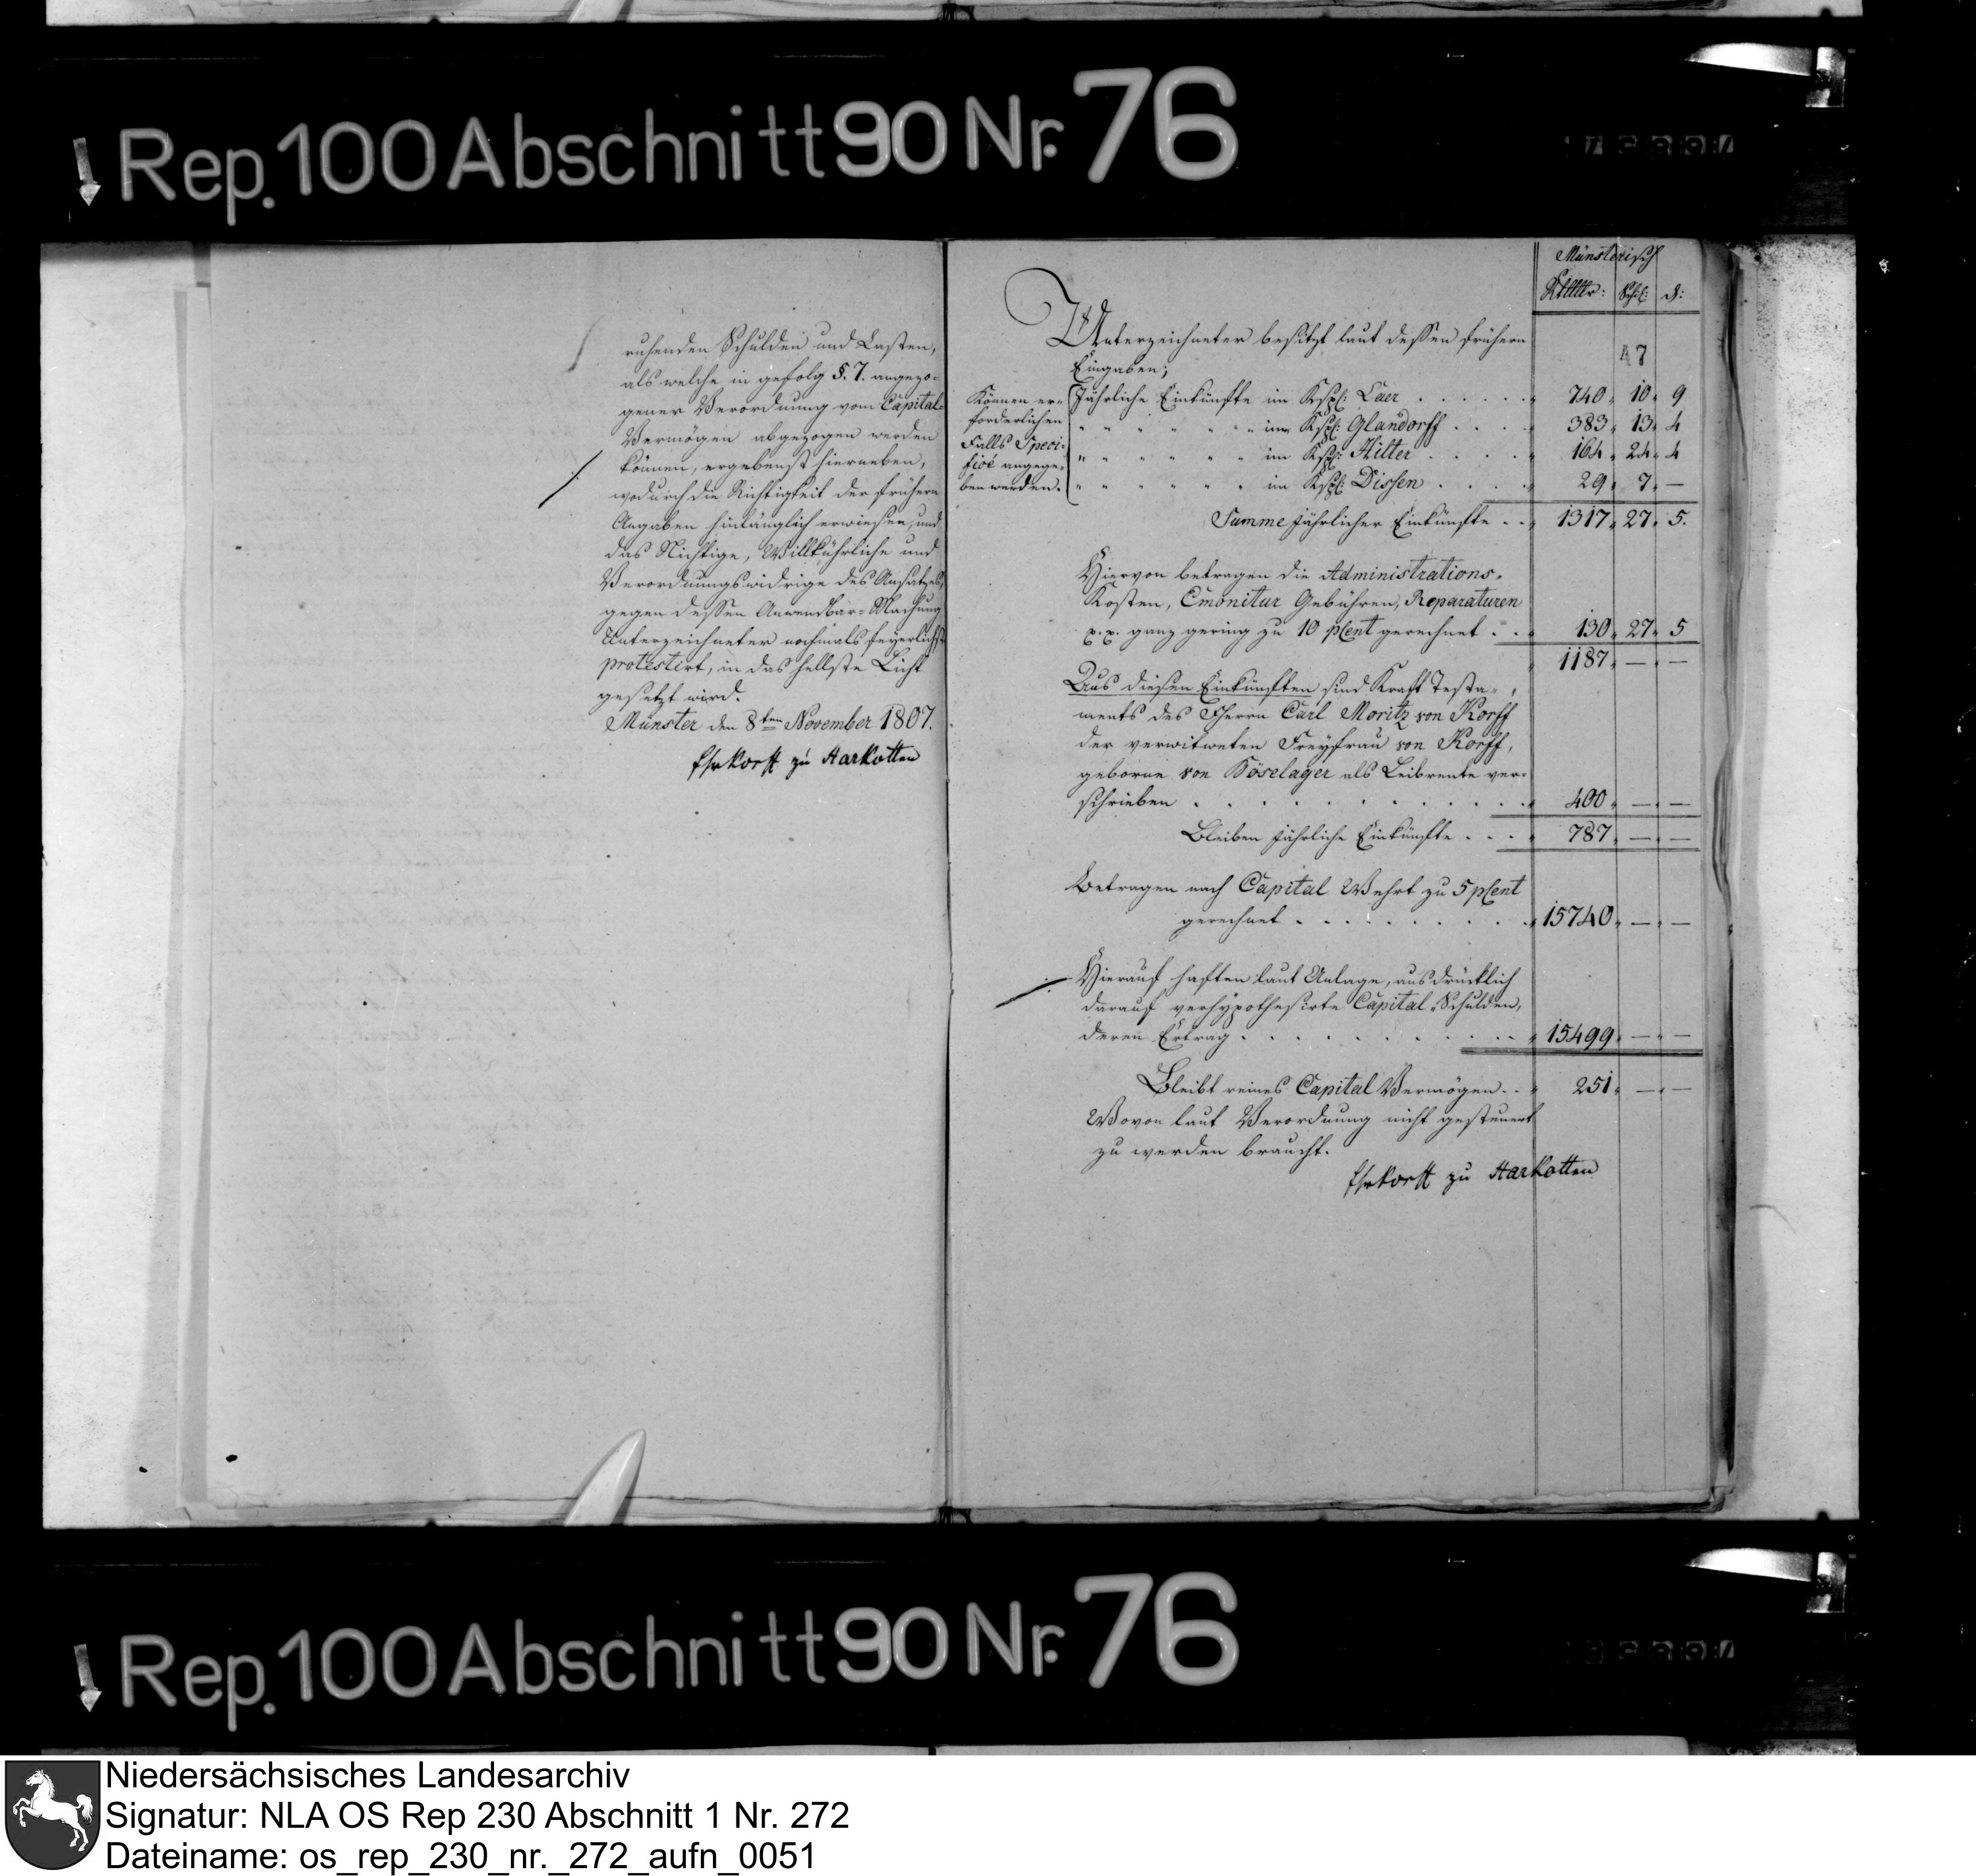 Rep. 100 Abschnitt 90 Nr. 76
ruhenden Schulden und Lasten,
als welche in gefolg §. 7. angezo-
gener Verordnung vom Capital-
Vermögen abgezogen werden
können, ergebenst hierneben,
wodurch die Richtigkeit der frühern
Angaben hinlänglich erwiesen, und
das Nichtige, Willkührliche und
Verordnungswidrige des Ansatzes,
gegen dessen Anwendbar-Machung
Unterzeichneter nochmals feyerlichst
protestirt, in das hellste Licht
gesetzt wird.
Münster den 8ten November 1807.
Korff zu Harkotten
Münsterisch
Rthlr: Schl: d:
47
Unterzeichneter besitzt laut dessen frühern
Eingaben;
Können er-
forderlichen
Falls Speci-
fice angege-
ben werden.
Jährliche Einkünfte im Kspl: Laer . . . . . . " 740 " 10 " 9
" " " " " " " im Kspl: Glandorff . . . . " 383 " 13 " 4
" " " " " " im Kspl: Hilter . . . . " 164 " 24 " 4
" " " " " " im Kspl: Dissen . . . . " 29 " 7 " —
Summe jährlicher Einkünfte . . " 1317 " 27 " 5.
Hiervon betragen die Administrations-
Kosten, Emonitur Gebühren, Reparaturen
p. p. ganz gering zu 10 pCent gerechnet . . " 130 " 27 " 5
" 1187 " — " —
Aus diesen Einkünften sind Kraft Testa-
ments des Fherrn Carl Moritz von Korff
der verwitweten Freyfrau von Korff,
geborne von Böselager als Leibrente ver-
schrieben . . . . . . . . . . . . " 400 " — " —
Bleiben jährliche Einkünfte . . . " 787 " — " —
Betragen nach Capital Wehrt zu 5 pCent
gerechnet . . . . . . . . . " 15740 " — " —
Hierauf haften laut Anlage, ausdrücklich
darauf verhypothesirte Capital-Schulden,
deren Ertrag . . . . . . . . . . " 15499 " — " —
Bleibt reines Capital Vermögen . . " 251 " — " —
Wovon laut Verordnung nicht gesteuert
zu werden braucht.
Korff zu Harkotten
Rep. 100 Abschnitt 90 Nr. 76
Niedersächsisches Landesarchiv
Signatur: NLA OS Rep 230 Abschnitt 1 Nr. 272
Dateiname: os_rep_230_nr._272_aufn_0051